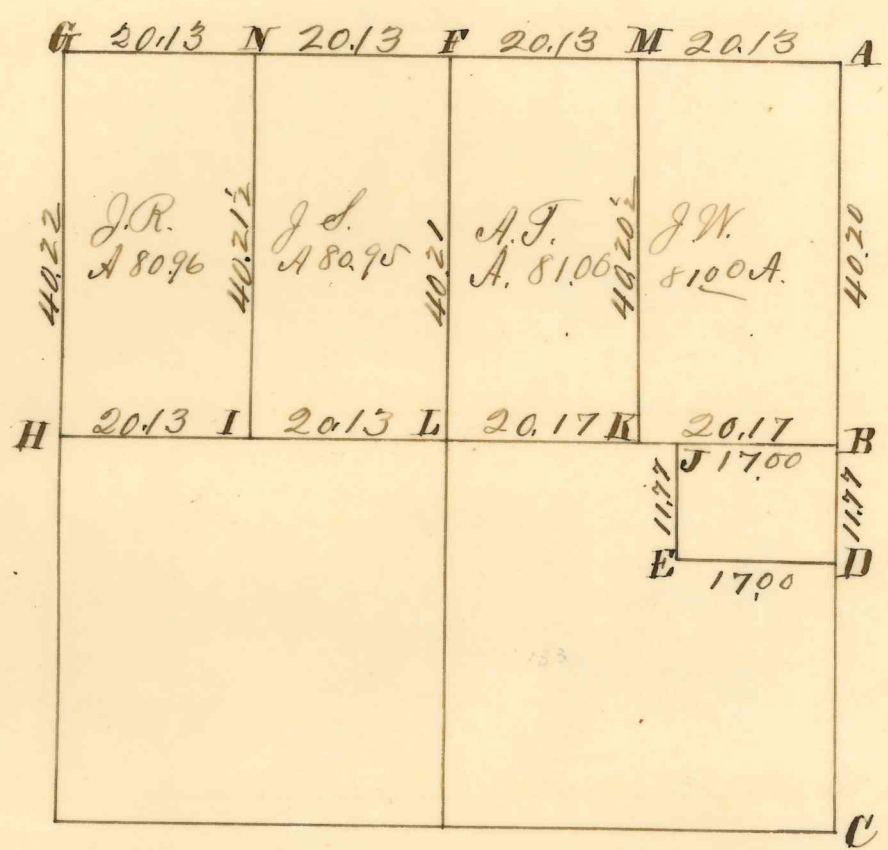 G 20.13 N 20.13 F 20.13 M 20.13 A
40.22
J.R.
A 80.96
40.21½
J S.
A 80.95
40.21
A.T.
A. 81.06
40.20½
J W.
81.00 A.
40.20
H 20.13 I 20.13 L 20.17 K 20.17 B
J 17.00
11.77
11.77
E 17.00 D
133
C